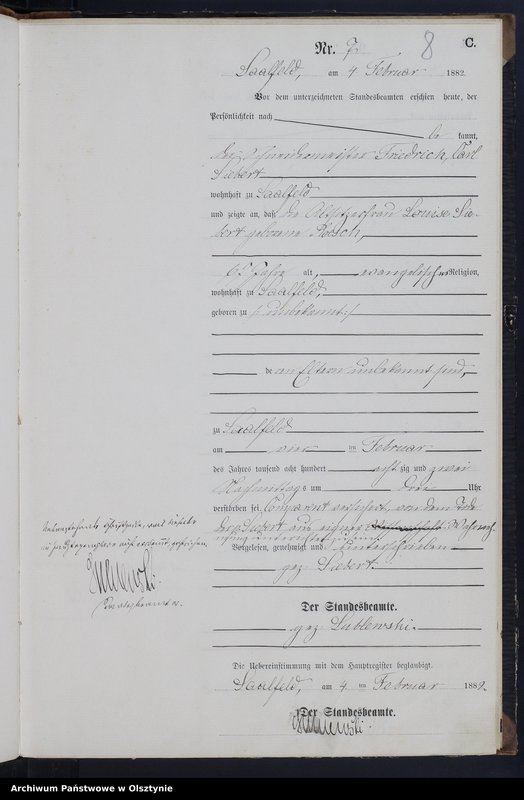 Nr. 7.
8
C.
Saalfeld, am 4 Februar 1882
Vor dem unterzeichneten Standesbeamten erschien heute, der
Persönlichkeit nach
be kannt,
der Schneidermeister Friedrich, Carl
Siebert
wohnhaft zu Saalfeld
und zeigte an, daß die Altsitzerfrau Louise Sie-
bert geborene
65 Jahre alt, evangelischer Religion,
wohnhaft zu Saalfeld,
geboren zu /: unbekannt :/
deren Eltern unbekannt sind,
zu Saalfeld
am vier im Februar
des Jahres tausend acht hundert acht zig und zwei
Nachmittags um drei Uhr
verstorben sei, Comparent versichert, von dem Tode
der p. Siebert aus eigener
unterrichtet zu sein.
Vorgelesen, genehmigt und unterschrieben
gez. Siebert.
Der Standesbeamte.
gez. Lublewski.
Die Uebereinstimmung mit dem Hauptregister beglaubigt.
Saalfeld, am 4 im Februar 1882.
Der Standesbeamte.
Lublewski.
Archiwum Państwowe w Olsztynie